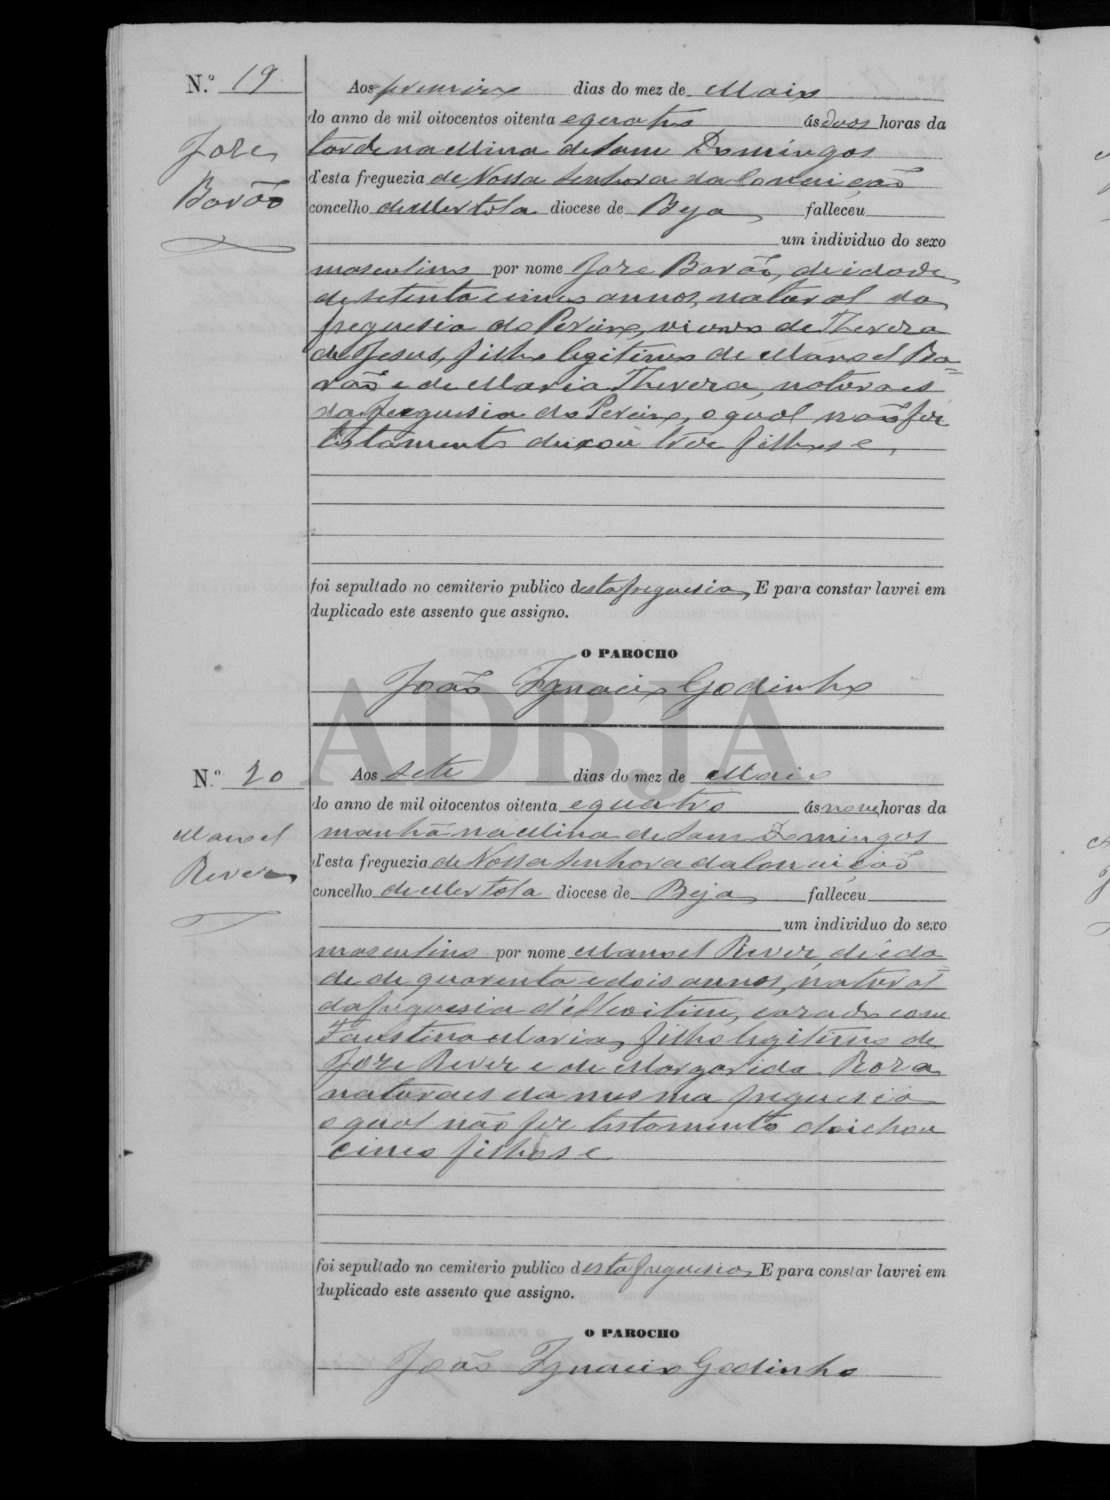 N.º 19
José
Barão
Aos primeiro dias do mez de Maio
do anno de mil oitocentos oitenta e quatro ás duas horas da
tarde na Mina de Sam Domingos
d'esta freguezia de Nossa Senhora da Conceição
concelho de Mertola diocese de Beja falleceu
um individuo do sexo
masculino por nome José Barão, de idade
de setenta e cinco annos, natural da
freguesia do Pereiro, viuvo de Thereza
de Jesus, filho legitimo de Manoel Ba=
rão e de Maria Thereza, naturaes
da freguesia do Pereiro, o qual não fez
testamento deixou trez filhos e,
foi sepultado no cemiterio publico desta freguesia, E para constar lavrei em
duplicado este assento que assigno.
O PAROCHO
João Ignacio Godinho
ADBJA
N.º 20
Manoel
Revez
Aos sete dias do mez de Maio
do anno de mil oitocentos oitenta e quatro ás nove horas da
manhã na Mina de Sam Domingos
d'esta freguezia de Nossa Senhora da Conceição
concelho de Mertola diocese de Beja falleceu
um individuo do sexo
masculino por nome Manoel Revez, de ida=
de de quarenta e dois annos, natural
da freguesia d'Alcoitim, cazado com
Faustina Maria, filho legitimo de
José Revez e de Margarida Roza
naturaes da mesma freguesia
o qual não fez testamento deichou
cinco filhos e
foi sepultado no cemiterio publico desta freguesia, E para constar lavrei em
duplicado este assento que assigno.
O PAROCHO
João Ignacio Godinho